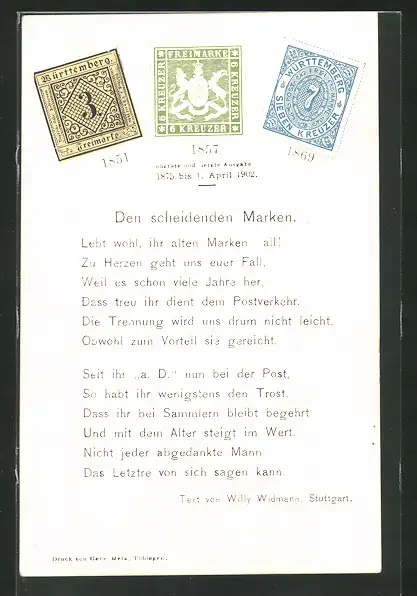 Württemberg.
3
Freimarke
1851
FREIMARKE
6 KREUZER
6 KREUZER
6 KREUZER
1857
WÜRTTEMBERG
7
SIEBEN KREUZER
1869
vierte und letzte Ausgabe
1875 bis 1. April 1902.
Den scheidenden Marken.
Lebt wohl, ihr alten Marken all!
Zu Herzen geht uns euer Fall,
Weil es schon viele Jahre her,
Dass treu ihr dient dem Postverkehr.
Die Trennung wird uns drum nicht leicht,
Obwohl zum Vorteil sie gereicht.
Seit ihr „a. D." nun bei der Post,
So habt ihr wenigstens den Trost,
Dass ihr bei Sammlern bleibt begehrt
Und mit dem Alter steigt im Wert.
Nicht jeder abgedankte Mann
Das Letztre von sich sagen kann.
Text von Willy Widmann, Stuttgart.
Druck von Gebr. Metz, Tübingen.